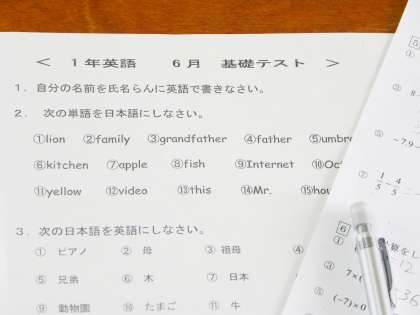 ＜ 1年英語　6月　基礎テスト ＞
1．自分の名前を氏名らんに英語で書きなさい。
2．次の単語を日本語にしなさい。
①lion ②family ③grandfather ④father ⑤umbre
⑥kitchen ⑦apple ⑧fish ⑨Internet ⑩Oc
⑪yellow ⑫video ⑬this ⑭Mr. ⑮hou
3．次の日本語を英語にしなさい。
① ピアノ ② 母 ③ 祖母 ④
⑤ 兄弟 ⑥ 木 ⑦ 日本
⑨ 動物園 ⑩ たまご ⑪ 牛
5
①
③
⑤ -7.9
⑦ 1/5 - 4/5
6
①
③ 7×(
⑤ (-7)×0